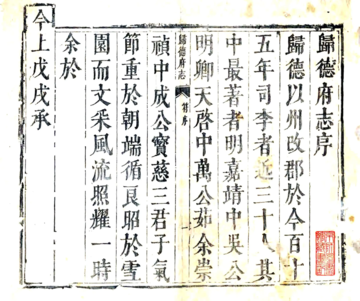 歸德府志序
歸德以州改郡於今百十
五年司李者近三十人其
中最著者明嘉靖中吳公
明卿天啓中萬公茹余崇
歸德府志
舊序
禎中成公寶慈三君子氣
節重於朝端循良昭於雪
園而文采風流照耀一時
余於
今上戊戌承